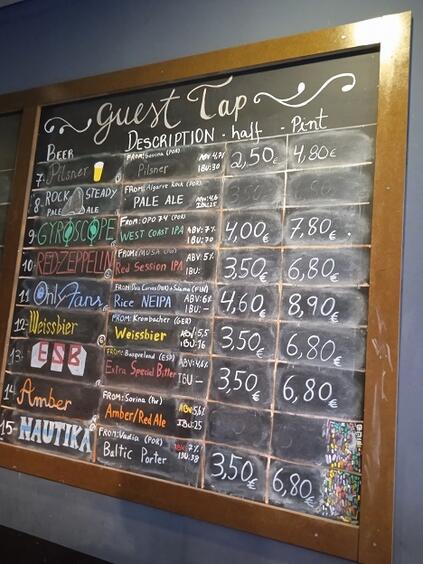 Guest Tap
BEER DESCRIPTION · half · Pint
7· Pilsner FROM: Sovina (POR) Pilsner ABV 4,7% IBU: 30 2,50€ 4,80€
8· ROCK STEADY PALE ALE FROM: Algarve Rock (POR) PALE ALE
9· GYROSCOPE FROM: OPO 74 (POR) WEST COAST IPA ABV: 7% IBU: 70 4,00€ 7,80€
10· RED ZEPPELIN FROM: (MUSA POR) Red Session IPA ABV: 5% IBU: 3,50€ 6,80€
11 Only Fans FROM: Dois Corvos (POR) + Salama (FIN) Rice NEIPA ABV: 6% IBU: – 4,60€ 8,90€
12· Weissbier FROM: Krombacher (GER) Weissbier ABV 5,5 IBU: 16 3,50€ 6,80€
13· ESB FROM: (ESP) Extra Special Bitter ABV: 4,6% IBU: – 3,50€ 6,80€
14· Amber FROM: Sovina Amber/Red Ale ABV 5,6% IBU: 25
15· NAUTIKA FROM: Vadia (POR) Baltic Porter 7% IBU: 38 3,50€ 6,80€